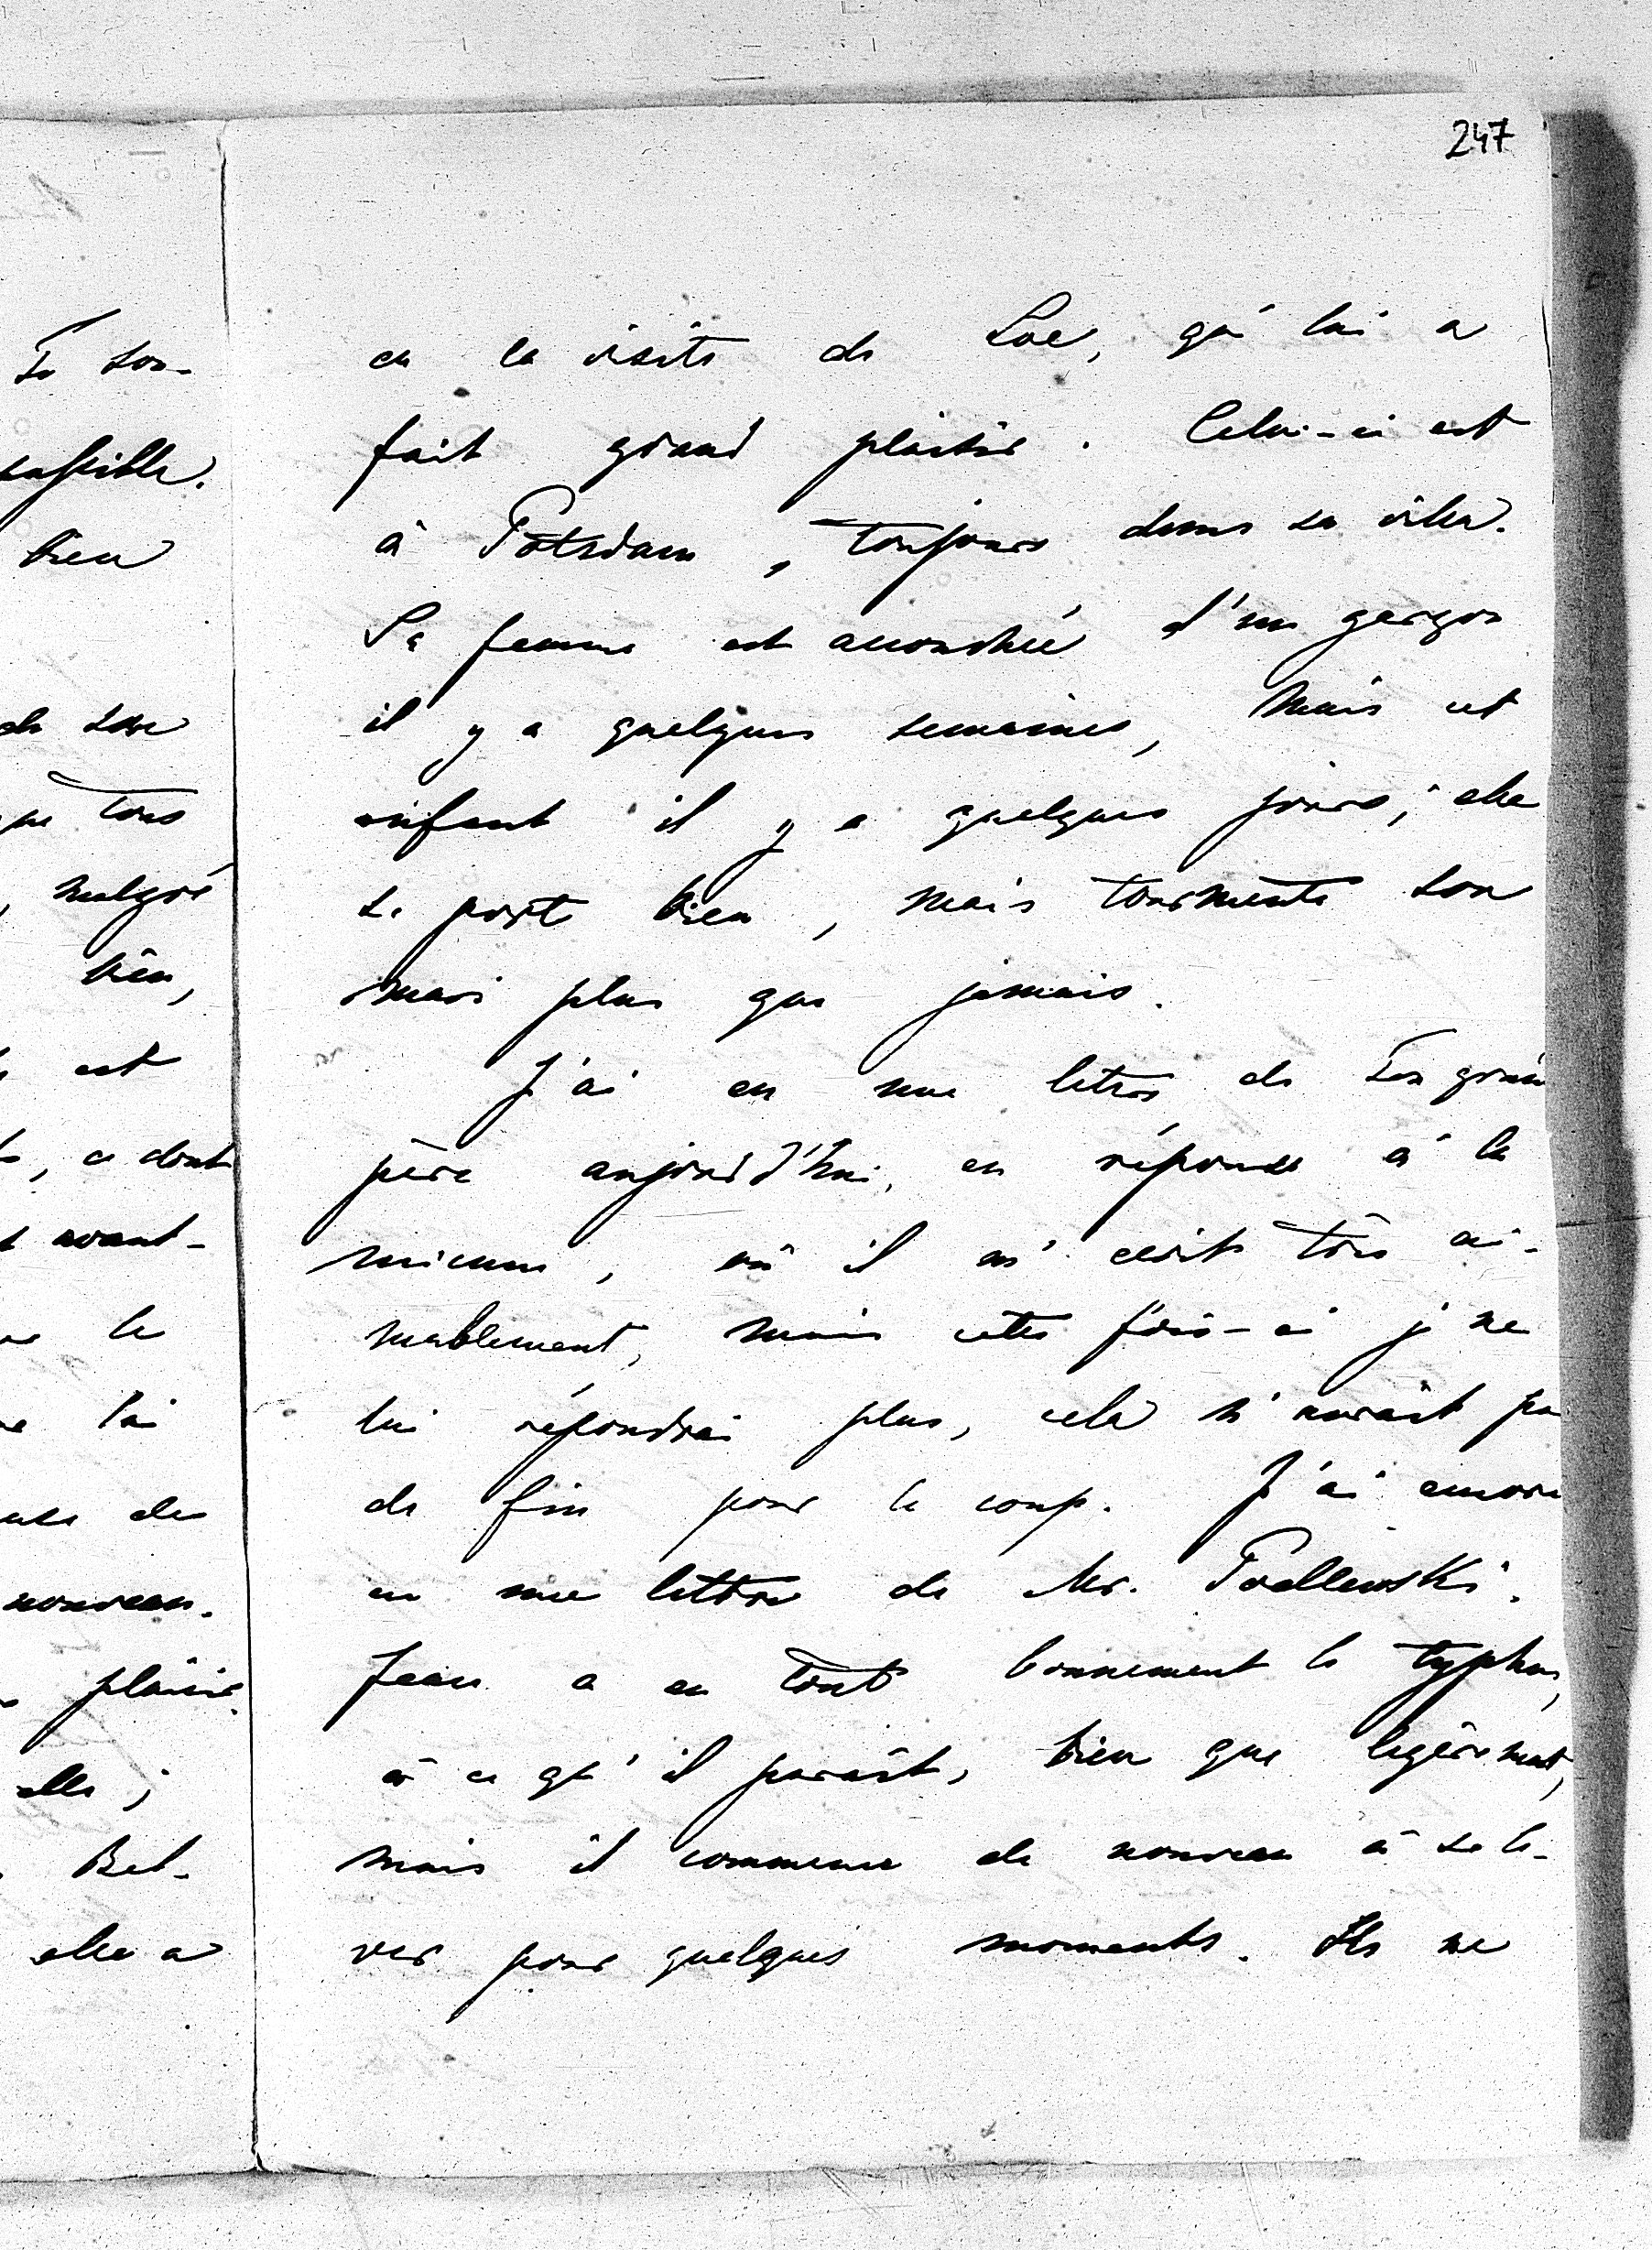 247
eu la visite de Loe, qui lui a
fait grand plaisir. Celui-ci est
à Potsdam, toujours dans sa villa.
Sa femme est accouchée d'un garçon
il y a quelques semaines, mais cet
enfant il y a quelques jours; elle
se porte bien, mais tourmente son
mari plus que jamais.
J'ai eu une lettre de Ton grand
père aujourd'hui, en réponse à la
mienne, où il m'écrit très ai-
mablement, mais cette fois-ci je ne
lui répondrai plus, cela n'aurait pas
de fin pour le coup. J'ai encore
eu une lettre de Mr.
Jean a eu tout bonnement le typhus,
à ce qu'il paraît, bien que légèrement,
mais il commence de nouveau à se le-
ver pour quelques moments. Ils ne
To son-
bien
de son
que tous
malgré
bien,
est
, ce dont
avant-
le
lui
de
nouveau.
plaisir.
elle;
Bel-
elle a